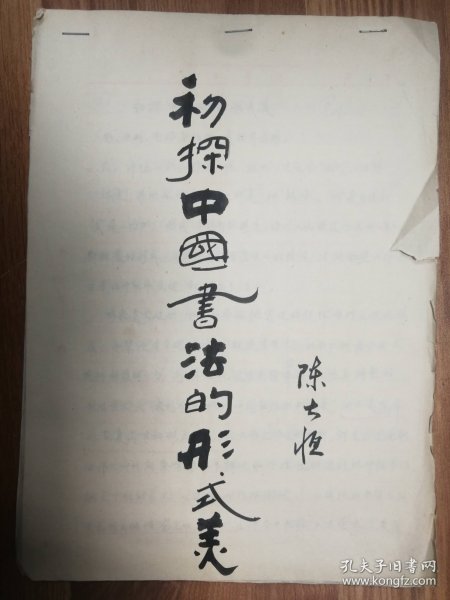 初探中國書法的形式美
陈大恒
孔夫子旧书网
www.kongfz.com